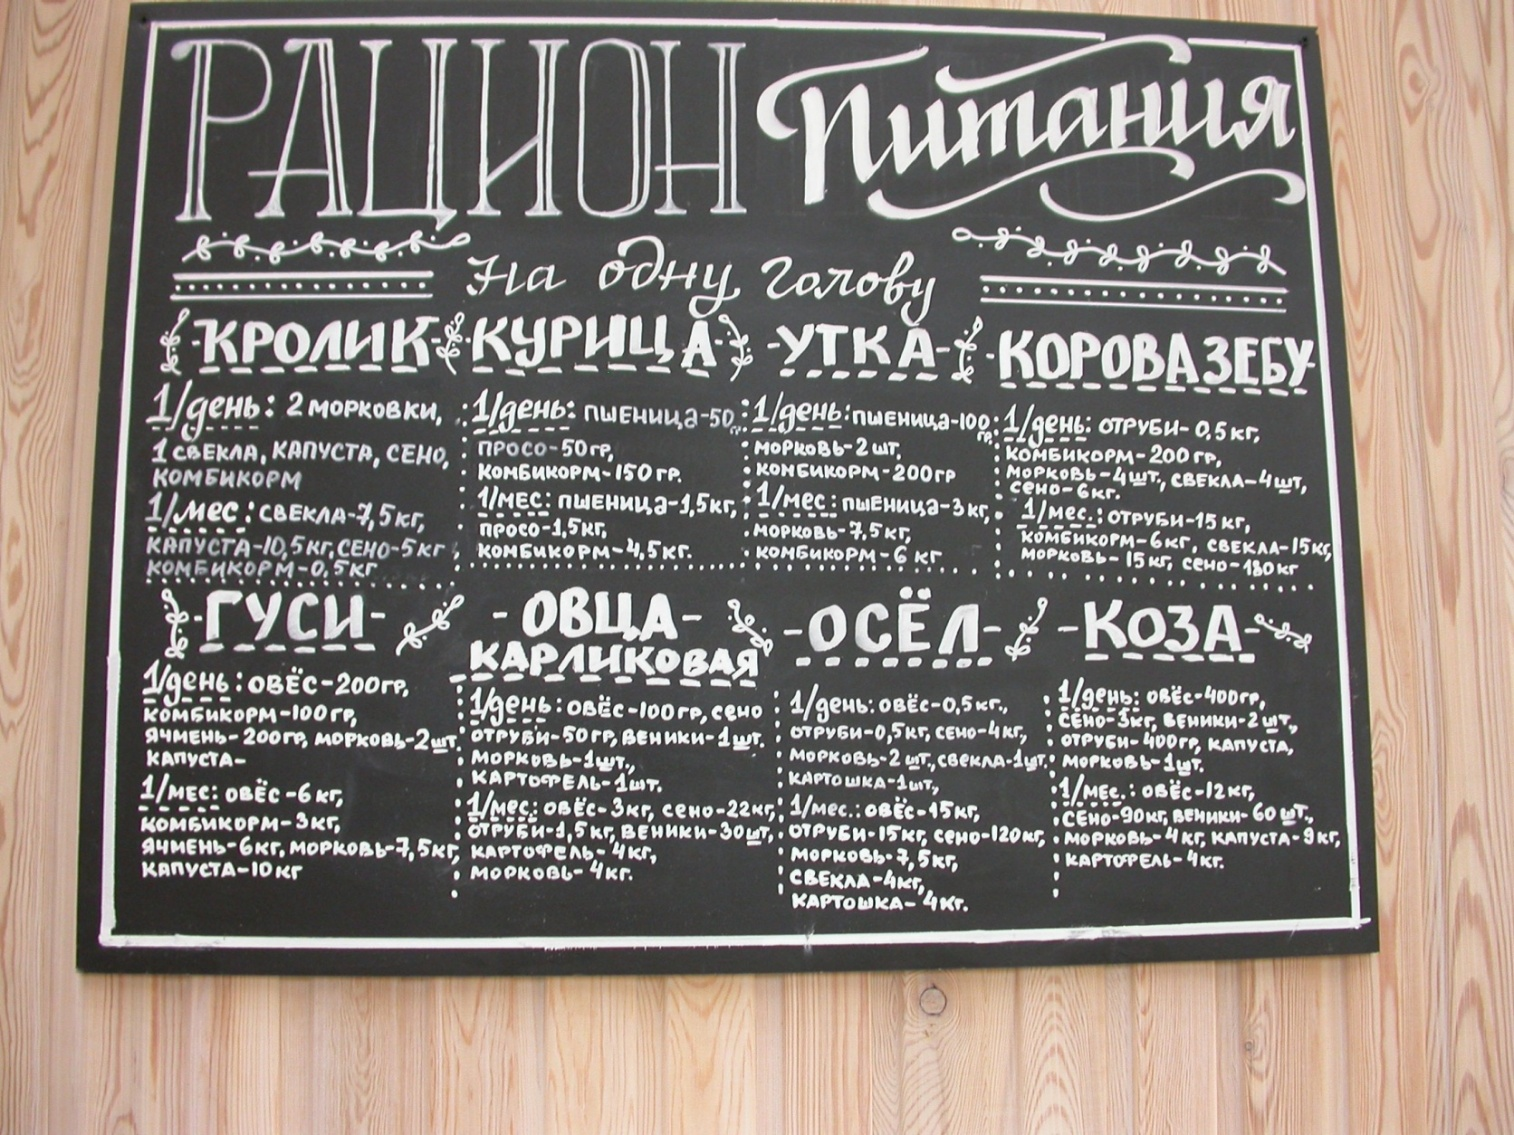 РАЦИОН Питания
На одну голову
-КРОЛИК-
1/день: 2 МОРКОВКИ,
1 СВЕКЛА, КАПУСТА, СЕНО,
КОМБИКОРМ
1/мес: СВЕКЛА-7,5кг,
КАПУСТА-10,5кг, СЕНО-5кг
КОМБИКОРМ-0,5кг
-КУРИЦА-
1/день: ПШЕНИЦА-50гр,
ПРОСО-50гр,
КОМБИКОРМ-150гр.
1/мес: ПШЕНИЦА-1,5кг,
ПРОСО-1,5кг,
КОМБИКОРМ-4,5кг.
-УТКА-
1/день: ПШЕНИЦА-100гр,
МОРКОВЬ-2шт,
КОМБИКОРМ-200гр
1/мес: ПШЕНИЦА-3кг,
МОРКОВЬ-7,5кг,
КОМБИКОРМ-6кг
-КОРОВА ЗЕБУ-
1/день: ОТРУБИ-0,5кг,
КОМБИКОРМ-200гр,
МОРКОВЬ-4шт., СВЕКЛА-4шт,
СЕНО-6кг.
1/мес.: ОТРУБИ-15кг,
КОМБИКОРМ-6кг, СВЕКЛА-15кг,
МОРКОВЬ-15кг, СЕНО-180кг
-ГУСИ-
1/день: ОВЁС-200гр,
КОМБИКОРМ-100гр,
ЯЧМЕНЬ-200гр, МОРКОВЬ-2шт,
КАПУСТА-
1/мес: ОВЁС-6кг,
КОМБИКОРМ-3кг,
ЯЧМЕНЬ-6кг, МОРКОВЬ-7,5кг,
КАПУСТА-10кг
-ОВЦА-
КАРЛИКОВАЯ
1/день: ОВЁС-100гр, СЕНО
ОТРУБИ-50гр, ВЕНИКИ-1шт.
МОРКОВЬ-1шт.,
КАРТОФЕЛЬ-1шт.
1/мес: ОВЁС-3кг, СЕНО-22кг,
ОТРУБИ-1,5кг, ВЕНИКИ-30шт,
КАРТОФЕЛЬ-4кг,
МОРКОВЬ-4кг.
-ОСЁЛ-
1/день: ОВЁС-0,5кг.,
ОТРУБИ-0,5кг, СЕНО-4кг,
МОРКОВЬ-2шт., СВЕКЛА-1шт.
КАРТОШКА-1шт.,
1/мес.: ОВЁС-15кг,
ОТРУБИ-15кг, СЕНО-120кг,
МОРКОВЬ-7,5кг,
СВЕКЛА-4кг,
КАРТОШКА-4кг.
-КОЗА-
1/день: ОВЁС-400гр,
СЕНО-3кг, ВЕНИКИ-2шт.,
ОТРУБИ-400гр, КАПУСТА,
МОРКОВЬ-1шт.
1/мес.: ОВЁС-12кг,
СЕНО-90кг, ВЕНИКИ-60шт.,
МОРКОВЬ-4кг, КАПУСТА-9кг,
КАРТОФЕЛЬ-4кг.